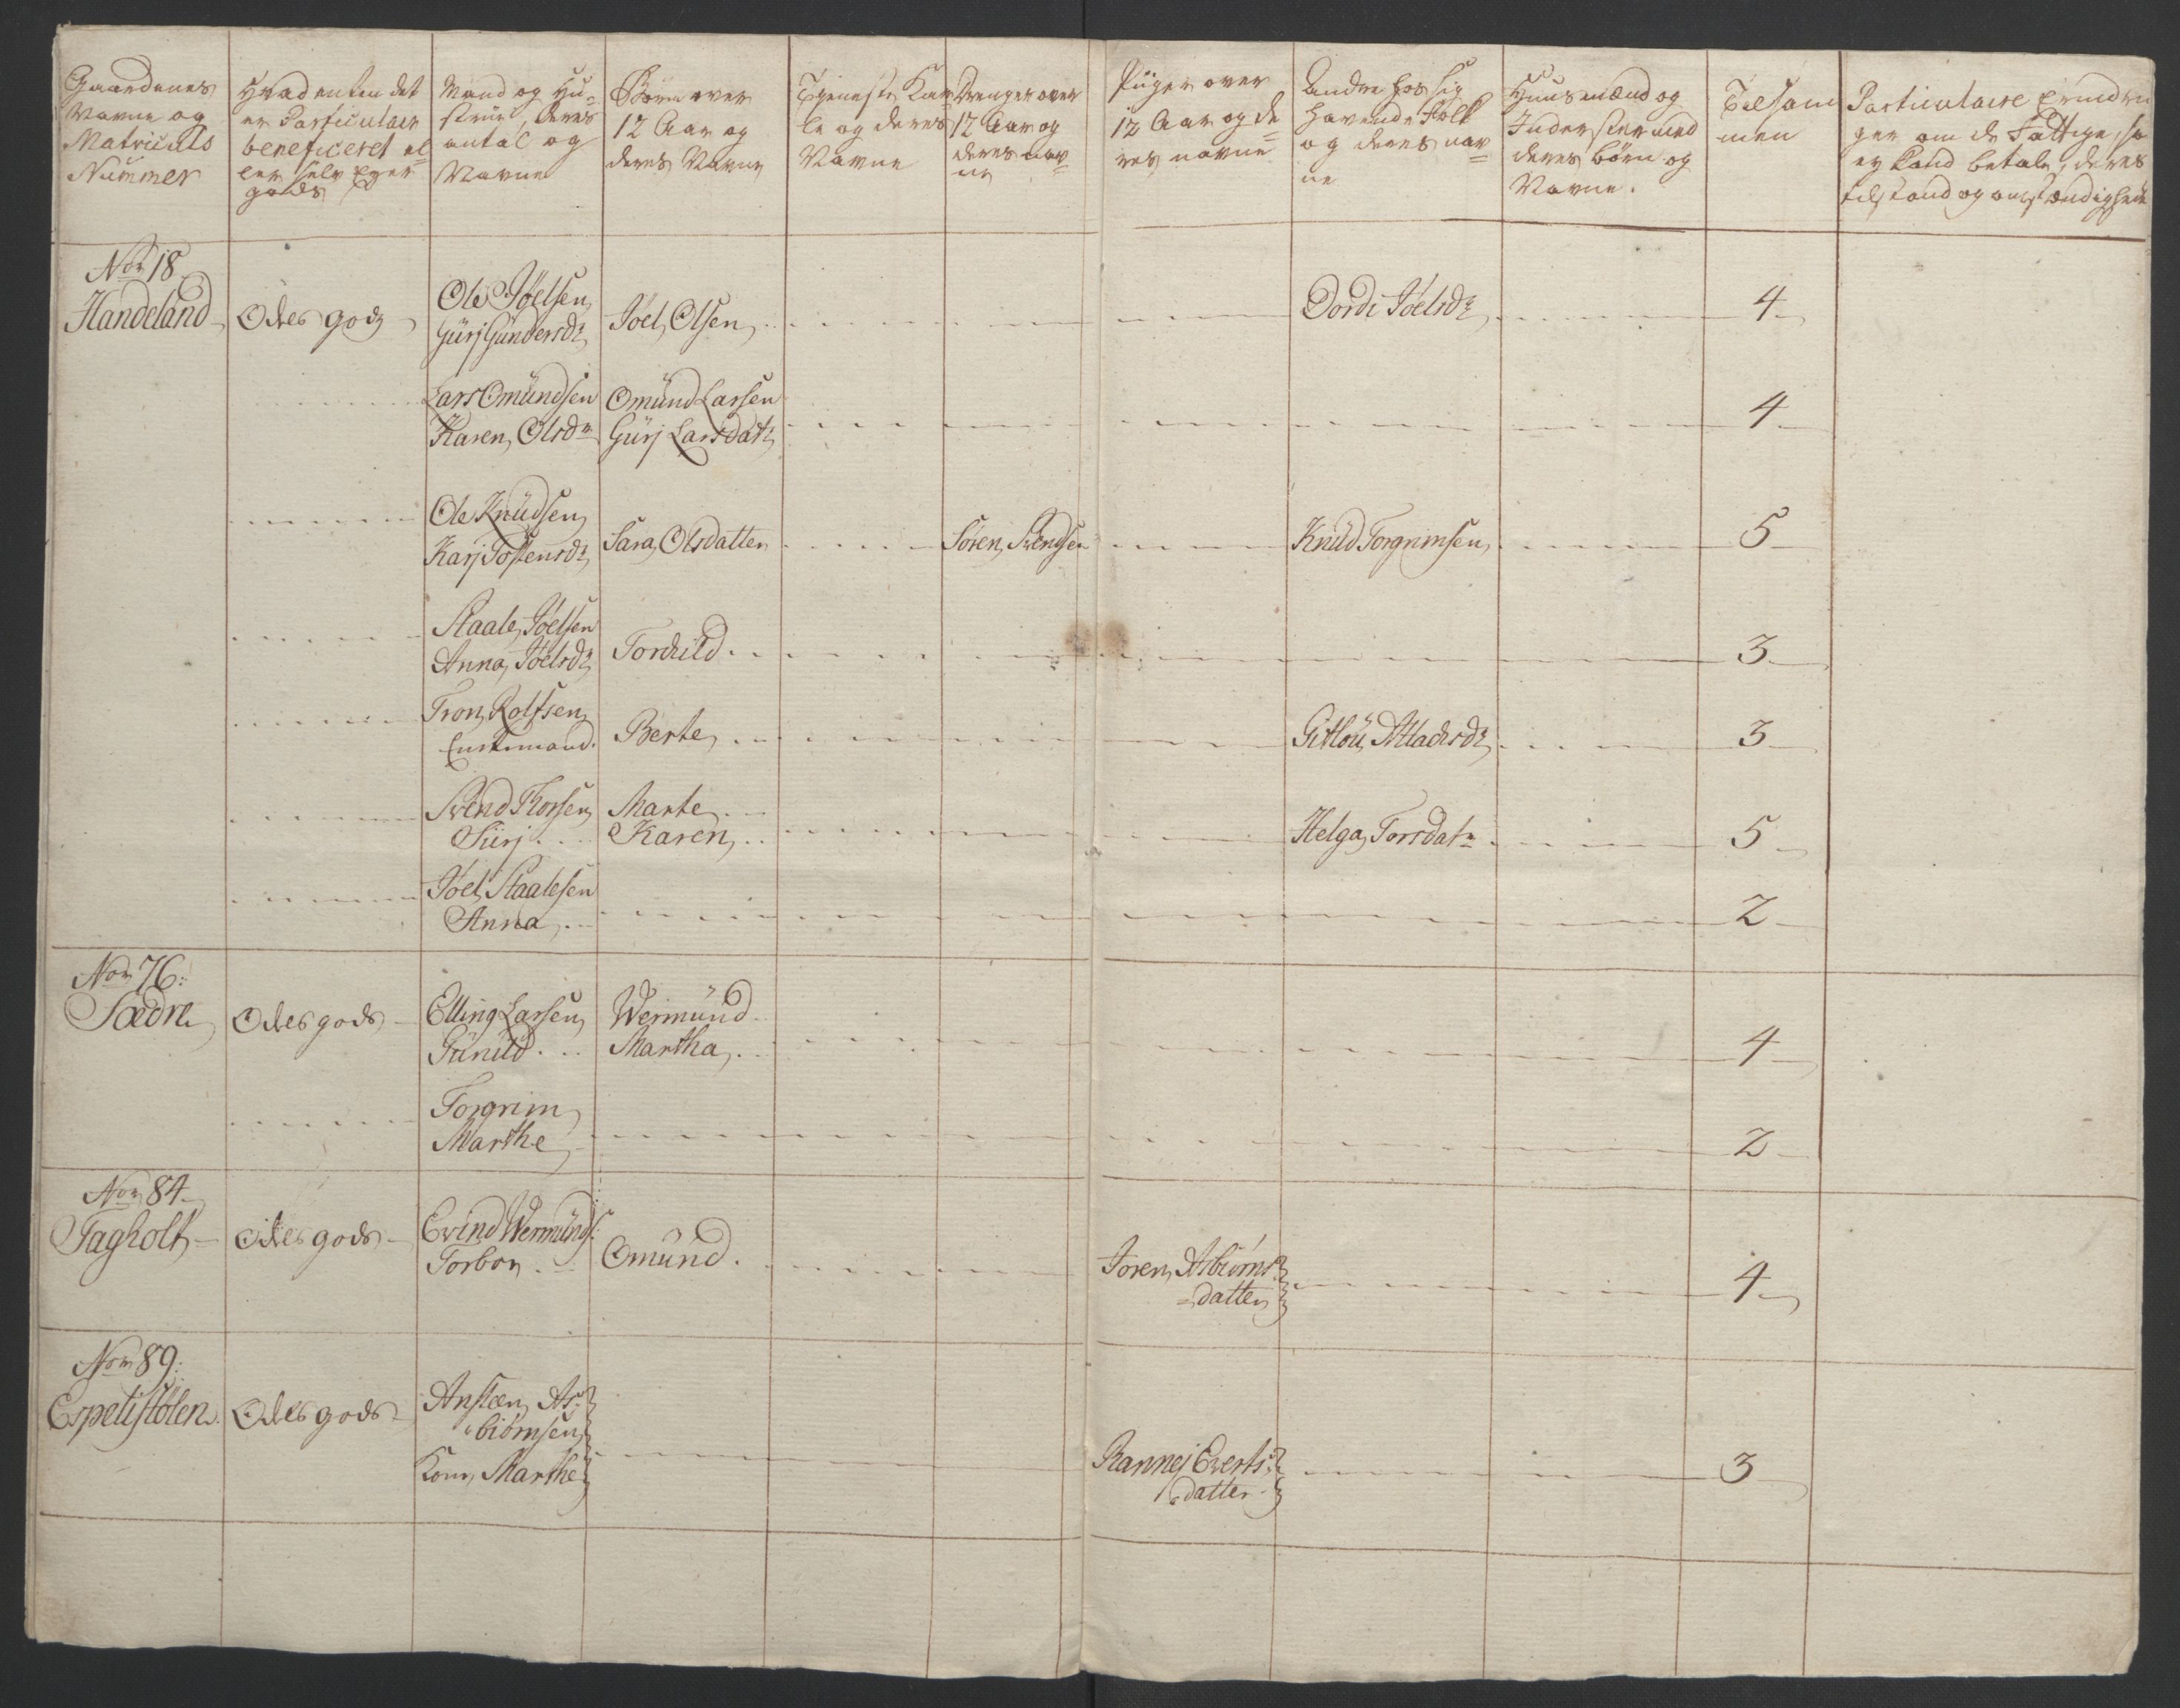 Gaardenes
Navne og
Matriculs
Nummer
Hvad enten det
er Particulair
beneficeret el
ler selv Eyer
gods
Mand og Hu=
strue, deres
antal og
Navne
Børn over
12 Aar og
deres Navne
Tjeneste Kar
le og deres
Navne
Drenger over
12 Aar og
deres nav=
ne
Piiger over
12 Aar og de=
res navne
Andre hos sig
havende Folk
og deres nav=
ne
Huusmænd og
Inderster med
deres børn og
Navne.
Tilsam
men
Particulaire Erindrin
ger om de Fattige, som
ey kand betale, deres
tilstand og omstændigheder
Nor 18
Handeland
Odels gods
Ole Jöelsen
Gürj Gündersdr
Joel Olsen
Dordi Jöelsdr
4
Lars Omündsen
Karen Olsdr
Omünd Larsen
Gürj Larsdatr
4
Ole Knüdsen
Karj Tostensdr
Sara Olsdatter
Sören Svendsen
Knüd Torgrimsen
5
Staale Jöelsen
Anna Jöelsdr
Torchild
3
Tron Rolfsen
Enkemand
Berte
Gitlou Atlachsdr
3
Svend Thorsen
Siirj
Marte
Karen
Helga Torsdatr
5
Jöel Staalesen
Anna
2
Nor 76:
Sædre
Odels gods
Elling Larsen
Günild
Wermünd
Martha
4
Torgrim
Marthe
2
Nor 84
Fagholt
Odels gods
Evind Wermünds:
Torbor
Omünd
Joren Asbiørns
datter
4
Nor 89:
Espetistölen
Odels gods
Ansten As=
biørnsen
Kone Marthe
Rannej Everts
datter
3